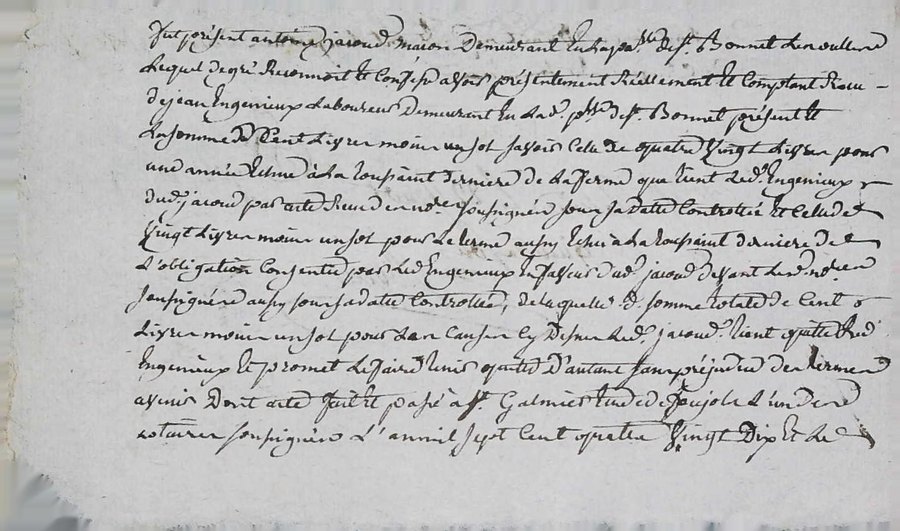 fut présent antoine jacoud macon Demeurant En la pa.sse de st. Bonnet Les oulles
Lequel de gré Reconnoit Et Confesse avoir présentement Réellement Et Comptant Recu
de jean Engenieux Laboureur Demeurant En lad. p.sse de st. Bonnet présent Et
La somme de Cent Livres moins un sol savoir Celle de quatre Vingt Livres pour
une année Echue à La toussaint derniere de La ferme que tient Led. Engenieux
dud. jacoud par acte Recu des no.res soussignés sous sa datte Controllée Et Celle de
Vingt Livres moins un sol pour Le terme aussy Echu a La toussaint derniere de
L'obligation Consentie par Led. Engenieux En faveur dud. jacoud devant Lesd. no.res
soussignés aussy sous sa datte Controllée, de laquelle d. somme totale de Cent
Livres moins un sol pour Les Causes Cy Dessus Led. jacoud tient quitte Led.
Engenieux Et promet Le faire tenir quitte D'autant sans préjudice des termes
a venir Dont acte fait Et passé a st. Galmier Etude de L'un des
notaires soussignés L'an mil sept Cent quatre Vingt Dix Et Le